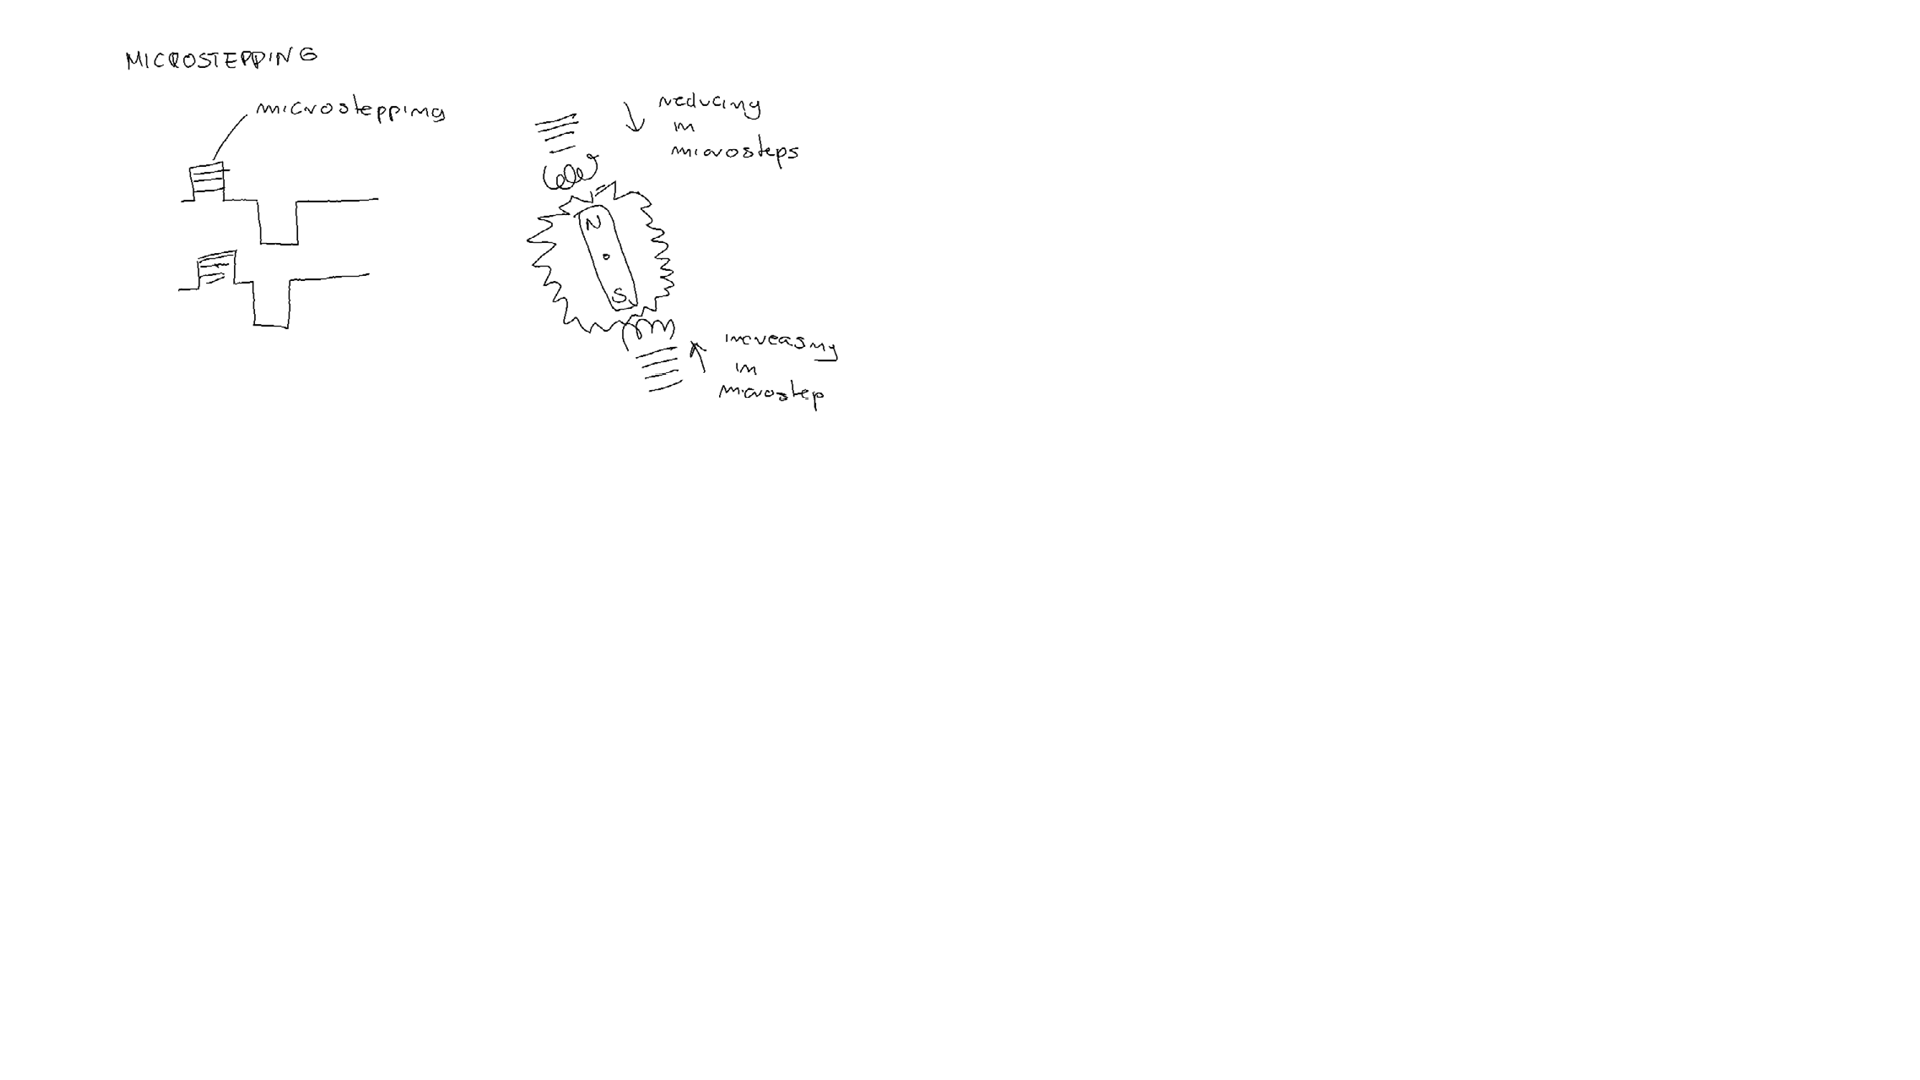 MICROSTEPPING
microstepping
reducing
in
microsteps
N
S
increasing
in
microstep